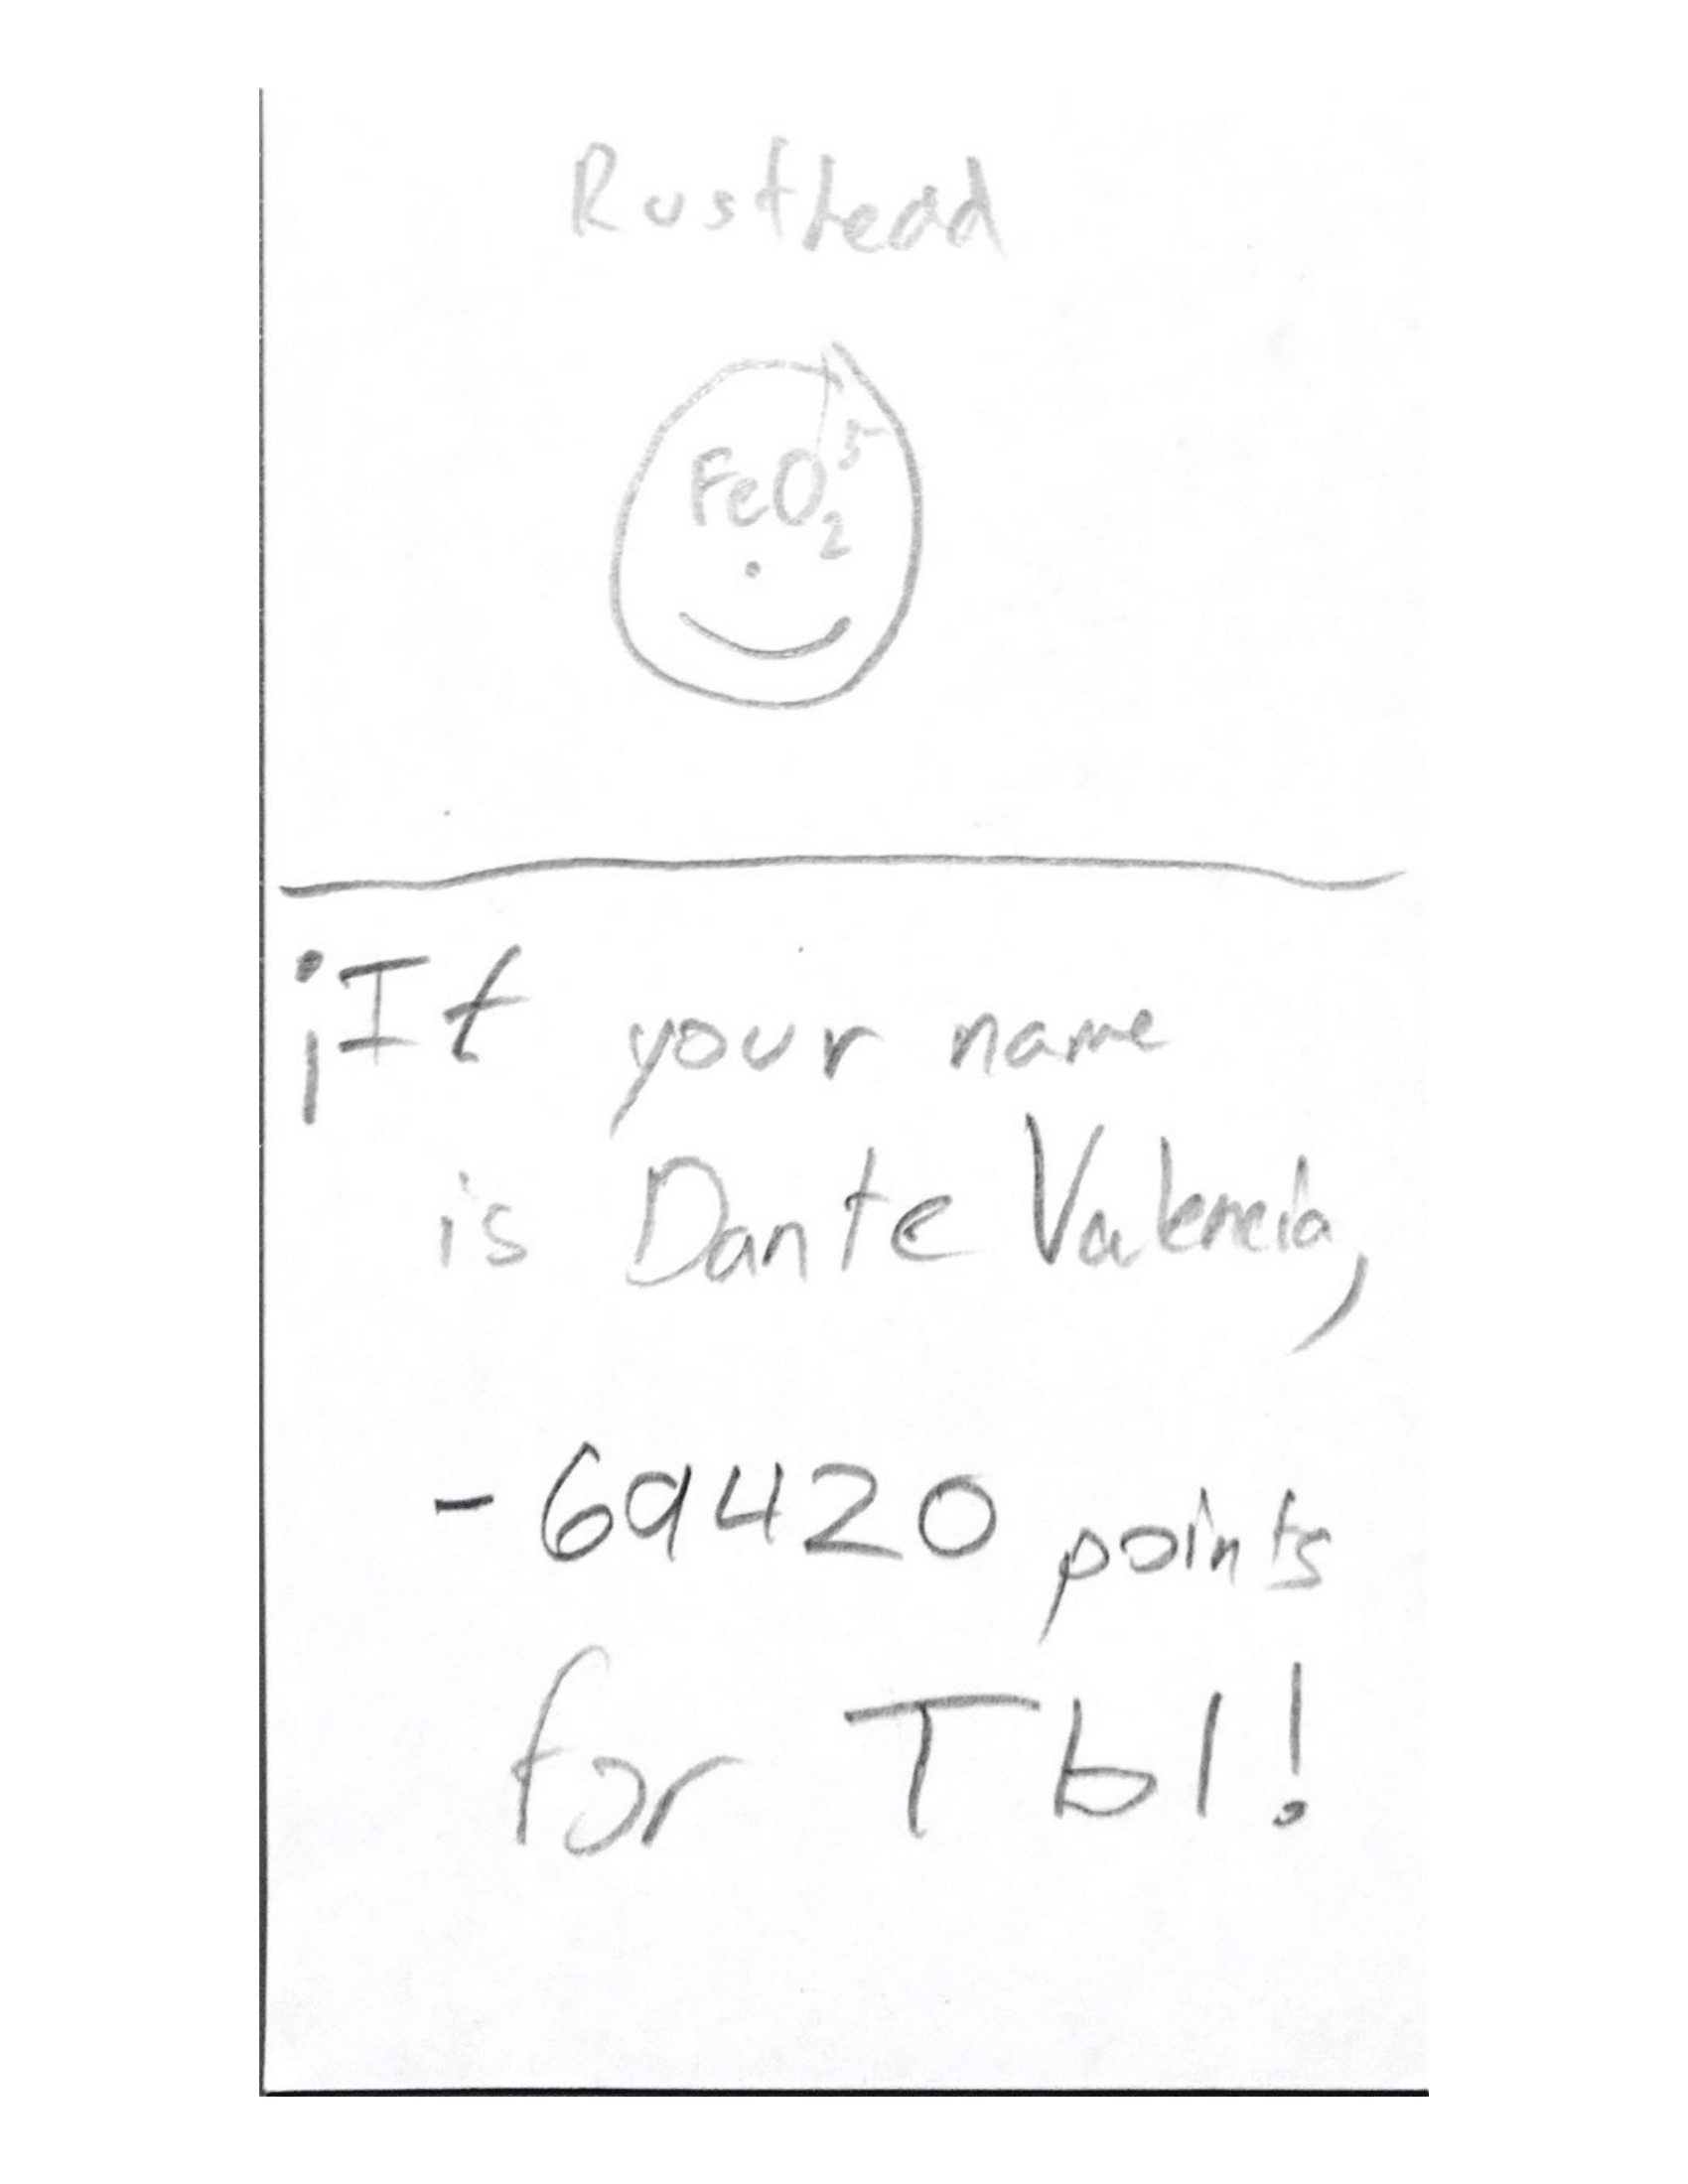 Rusthead
FeO₂⁵⁻
¡If your name
is Dante Valencia,
-69420 points
for Tbl!